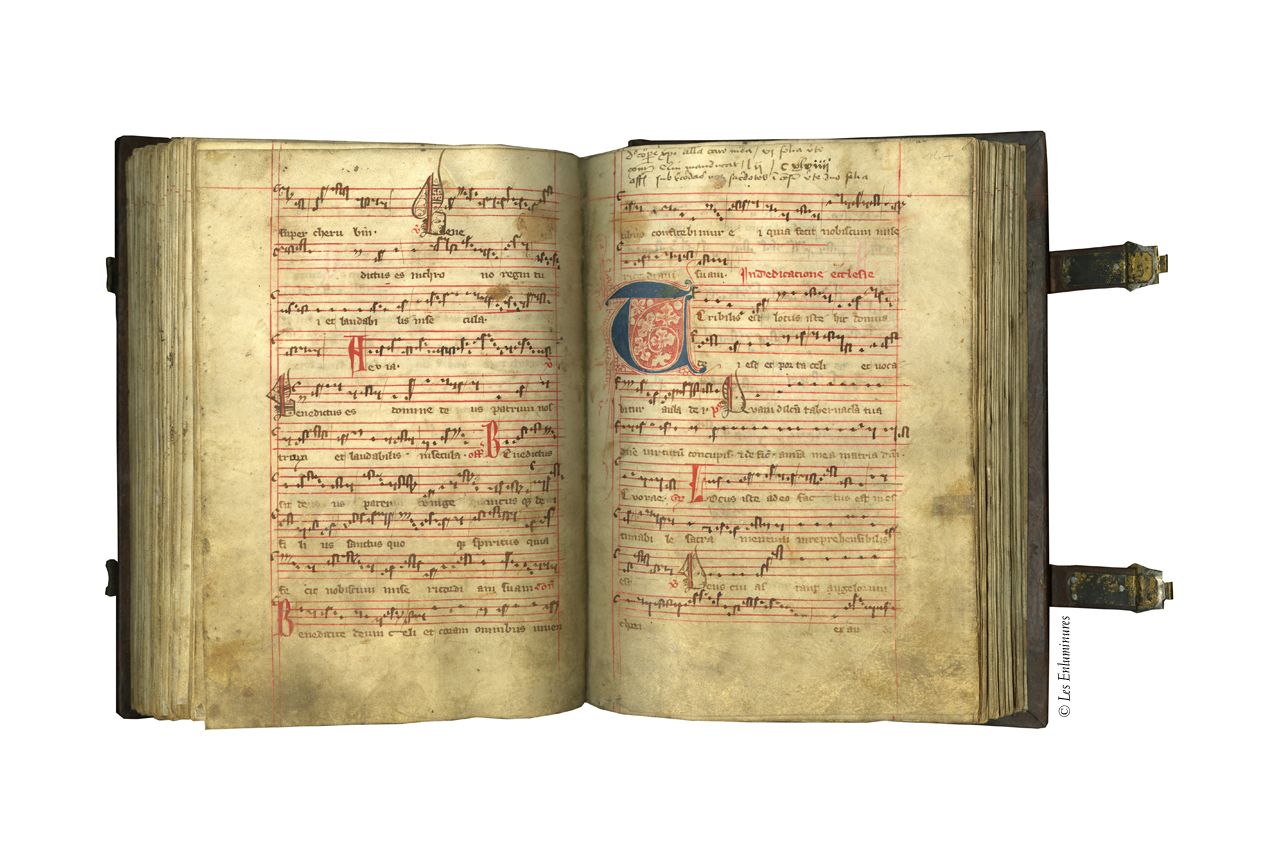 super cheru bim · ℣ Bene
dictus es in thro no regni tu
i et laudabi lis in se cula·
A ev ia· ℣
Benedictus es domine de us patrum nos
trorum et laudabilis in secula· off̄ Benedictus
sit de us pater unige nitus q; de i
fi li us sanctus quo q; spiritus quia
fe cit nobiscum mise ricordi am suam com̄
Benedicite deum celi et coram omnibus viven
alla caro mea / vj folia
tibus confitebimur e i quia fecit nobiscum mise
ricordiam suam· In dedicatione ecclesie
Terribilis est locus iste hic domus
de i est et porta celi et voca
bitur aula de i p̄s Quam dilecta tabernacula tua
domine virtutum concupis· & defic̄· anima mea in atria dm̄·
Evovae· Gr̄ Locus iste a deo fac tus est in es
timabi le sacra mentum inreprehensibilis
est ℣ Deus cui as tant angelorum
chori ex au
© Les Enluminures